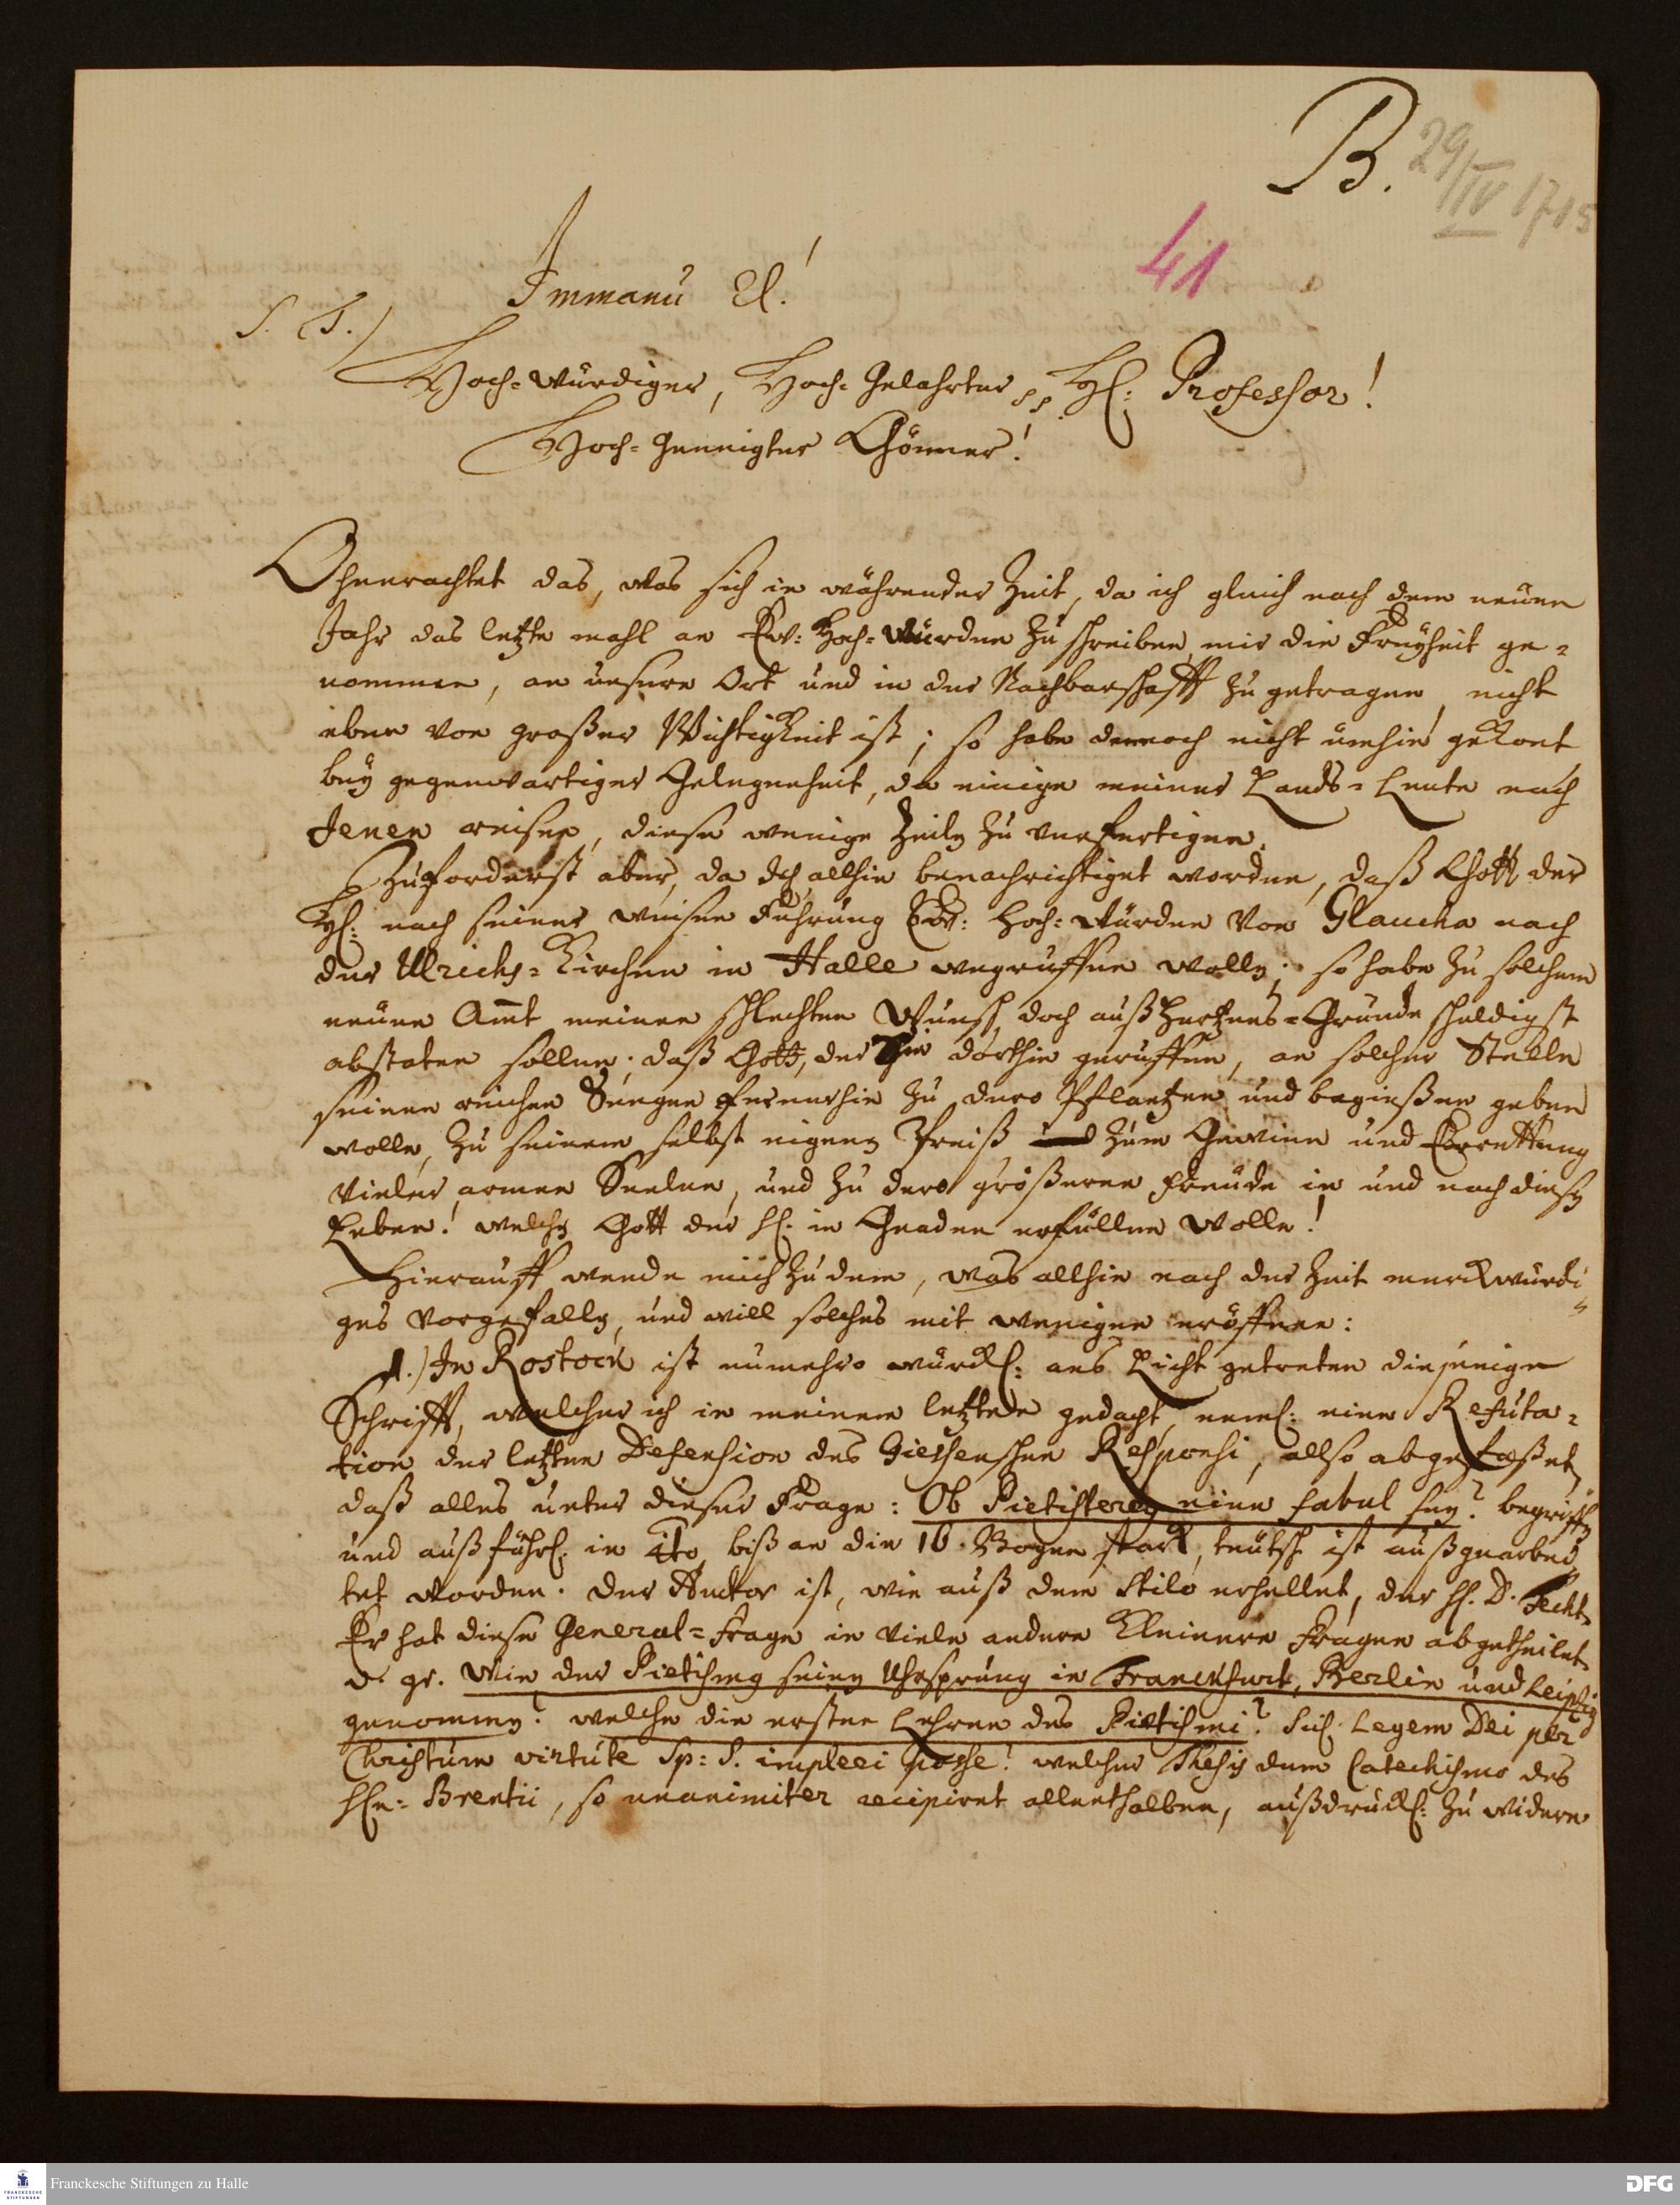 B.
29/IV 1715
41
Immanu El!
S. T./
Hoch-würdiger, Hoch-Gelahrter pp. H: Professor!
Hoch-Geneigter Gönner!
Ohnerachtet das, was sich in währender Zeit, da ich gleich nach dem neuen
Jahr das letzte mahl an Ew: Hoch-Würden zu schreiben, mir die Freyheit ge-
nommen, an unsern Ort und in der Nachbarschafft zu getragen, nicht
eben von großer Wichtigkeit ist; so habe dennoch nicht ümhin gekont
bey gegenwartiger Gelegenheit, da einige meiner Lands-Leute nach
Jenen reisen, diese wenige Zeiln zu verfertigen.
Zuforderst aber, da ich allhie benachrichtiget worden, daß Gott der
H: nach seiner weisen Führung Ew: Hoch-Würden von Glaucha nach
der Ulrichs-Kirchen in Halle wegruffen wolln; so habe zu solchem
neuen Amt meinen schlechten Wunsch, doch auß Hertzens-Grunde schuldigst
abstaten sollen; daß Gott, der Sie dorthin geruffen, an solcher Stelle
seinen reichen Seegen fernerhin zu dero Pflantzen und begießen geben
wolle, zu seinem selbst eignen Preiß, zum Gewinn und Errettung
vieler armen Seelen, und zu dero größeren Freude in und nach diesem
Leben! welches Gott der H. in Gnaden erfüllen wolle!
Hierauff wende mich zu dem, was allhie nach der Zeit merckwürdi-
ges vorgefalln, und will solches mit wenigen eröffnen:
1.) In Rostock ist nunmehro würckl: ans Licht getreten diejenige
Schrifft, welcher ich in meinem letztern gedacht, neml: eine Refuta-
tion der letzten Defension des Giessenschen Responsi, allso abgefaßet,
daß alles unter dieser Frage: Ob Pietisterey eine fabul sey? begriffen
und außführl. in 4to, biß an die 16. Bogen starck, teutsch ist außgearbei-
tet worden. Der Auctor ist, wie auß dem Stilo erhellet, der H. D. Fecht.
Er hat diese General-Frage in viele andere kleinere Fragen abgetheilet
v. gr. Wie der Pietismus seinen Uhrsprung in Franckfurt, Berlin und Leipzig
genommen? welche die ersten Lehren des Pietismi? Sicl. Legem Dei per
Christum virtute Sp: S. impleri posse? welcher Thesis dem Catechismo des
Hn: Brentii, so unanimiter recipiret allenthalben, außdrückl: zu widern
Franckesche Stiftungen zu Halle
FRANCKESCHE STIFTUNGEN
DFG